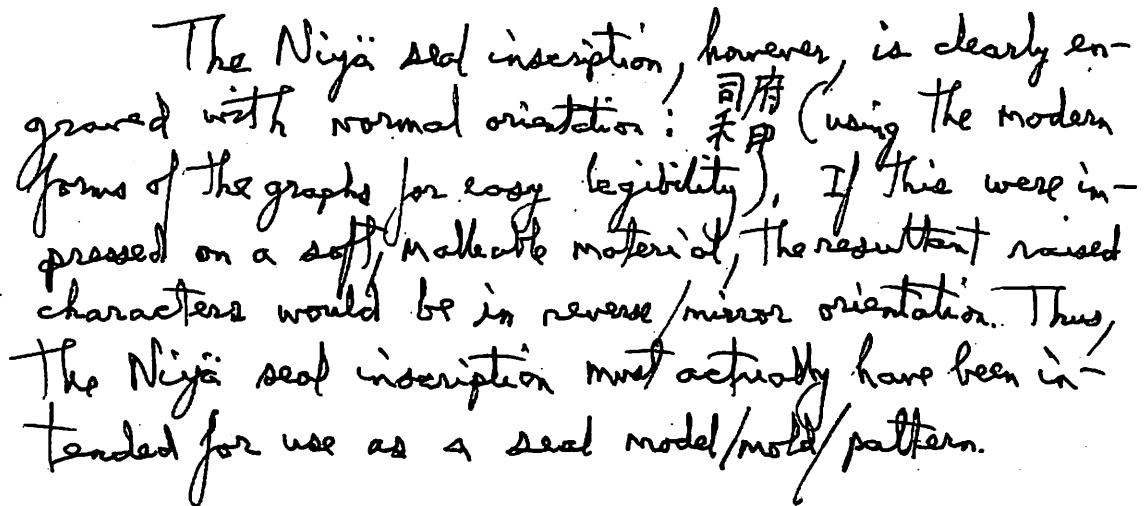 The Niyä seal inscription, however, is clearly en-
graved with normal orientation: 司禾府印 (using the modern
forms of the graphs for easy legibility). If this were im-
pressed on a soft, malleable material, the resultant raised
characters would be in reverse/mirror orientation. Thus,
the Niyä seal inscription must actually have been in-
tended for use as a seal model/mold/pattern.